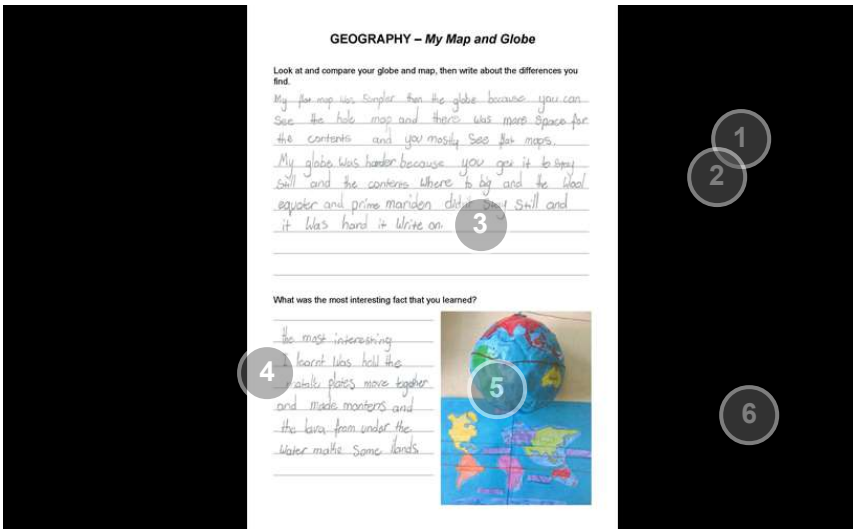 GEOGRAPHY – My Map and Globe
Look at and compare your globe and map, then write about the differences you
find.
My flat map was Sompler then the globe because you can
See the hole map and there was more Space for
the contents and you mostly See flat maps.
My globe was harder because you get it to stay
Still and the contents Where to big and the Wool
equater and prime mariden didnt stay Still and
it Was hard it Write on.
What was the most interesting fact that you learned?
the most interesting
I learnt Was how the
plates move together
and made monterrs and
the lava from under the
Water make Some Ilands
1
2
3
4
5
6